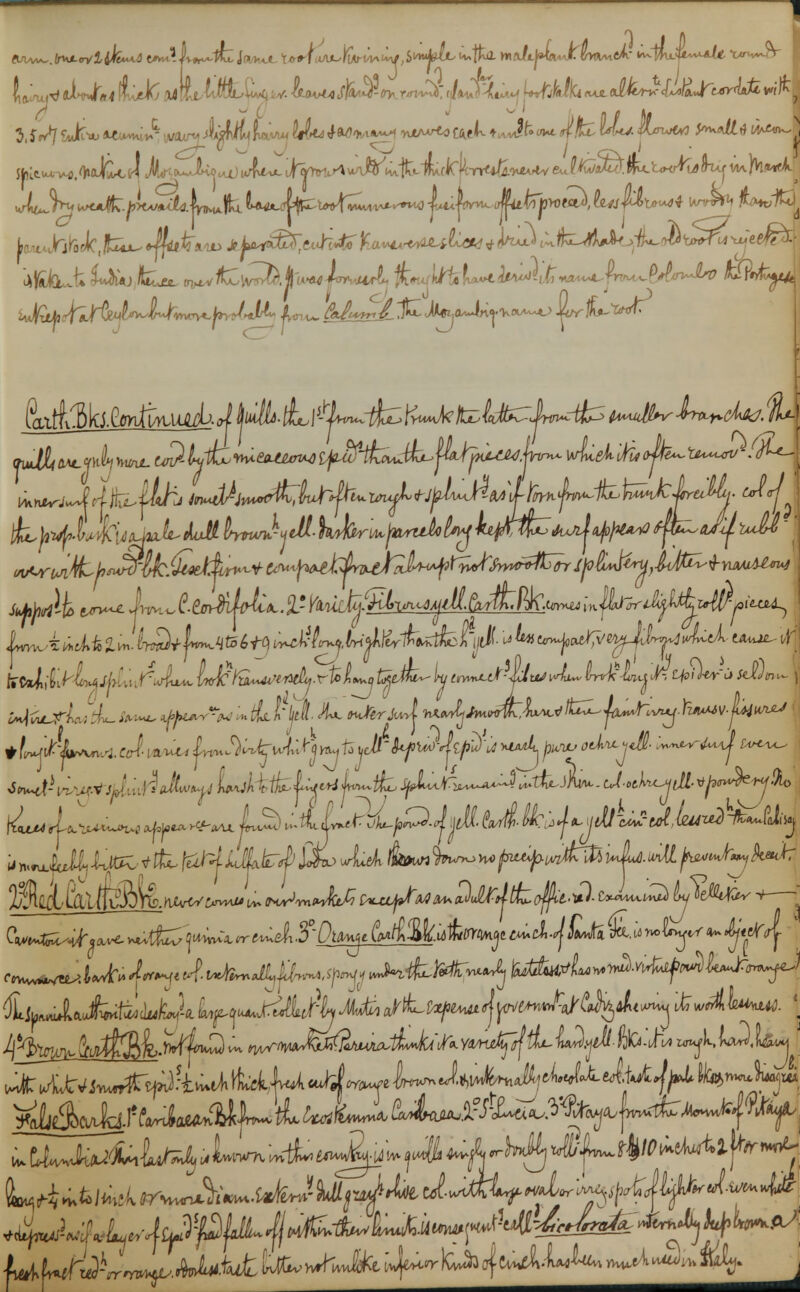 ann. one or 2 stems com? from the same root are twining, simple in the male plant branch? in the female round
hairy & about as thick as the little finger. leaves stand? on round. gland? hairy footstalks are altern? distant cordate with
3, 5 or 7 entire acumin? wavy slightly hairy lobes & as many nerves each runs to one of the lobes. flowers small & incon
spicuous. Native of Mozambique where it grows wild in the thick forrests never cultivated. the root is dug in March
when dry weath. prevails. from the base of the root numerous fusiform offsets proceed, less fibrous & woody than the
parent stock, these offsets are seperated, cut into transverse slices & dried in the shade, the old root is rejected.
taken to India, thence over the World. It was formerly thought to have deriv? its name from Colombo the Portugese
entrepot at Ceylon but more probably from Calumb, the Mozambique name for the root.
Carth. Bks. Continued. of quills. the 1st from the trunk the latter from the smaller branches. The
quills are gnly more. cov? by the micaceous epid? than the flat pieces. from which it is often remov?. The
inner surf of the flat is somet? smooth, but often rough & splint? as if torn from the trunk forcibly. col of
the prop. bark is a pale dull brown? yell. darker in parcels long kept, the surf appears often as if rubb?
over with powd? bk. Text. firm & compact, fract abrupt not smooth or splintery, bitter & nauseous
suppos? to come from C. Cordifolia. 2? Variety. Fibrous yell. Carth. Bk. comes in flat or slightly roll? pieces,
from ½ inch to 2 in. broad & from 4 to 6 & 9 inch? long, brighter than the h? yell. is less compact, very fibrous which cause it
to exhibit long splint? when brok? transversely. & to hang together by connect? fibres when brok? long it? Epider? is seldom
entire & has the same appear? as in the h? yell. the outer surf nearly smooth, have? there faint irreg. transv. fissures
& longit? furrows. col. varies from dirty whit? gray to yell? depriv? of epid? is nearly pure ochre yell. inner surf even
somet? irreg. & splint? allways harsh to the fingers from the splint? remain? in the skin. col. ochre yell. & powdery. No
traces of a resinous appear? are found in the fract. The powd. of yell. Carth. bk. is of a yell? cin? col, less red? than Calisay
is more feebly bitter & the test of sulfate of Soda which throws down no precip. with its infus. will prevent any deceit.
2? Red Carth. Bk. never comes in our markets except as an adult of the offic. red. examined by Pelletier &
Caventou it gave neither quinia or cinch. 3? Orange Carth. Bk. is the orange cinch. of Santa Fee, is no longer an object of
commerce. bark is of orange col. externally fibrous, spongy under the teeth, nearly tasteless & has no med. virtue powd beaut. orange
The Spanish authorities destroy? a large quant. collect? by Mutis at the expense of government at Cadiz, shewing its worthlessness.
4? Brown Carth. Bk. not found in our markets. Pereira thinks it a variety of the hard yell. Bks. it is rough, hard, heavy
with whit? & smooth epid? ½ inch thick, fresh cut of orange brown col. & internally chocolate col. taste of pale Bks. more disagree
False Barks. 1? Caribaean Bk from the Exostemma Caribaea. 2? St Lucia. 3? Pitaya from the Mount? of Pitaya
in Columbia. This last only is known in this country. is in quills singly or doubly roll? from 8 to 10 inches to 2 ft or more
long & ½ in to 1 inch or more diam. Extern? dull gray? olive col. with large oval or irreg. spots of lighter col. even white
& depress? as if a layer of epid? had fallen off within their limits. is consequent? call? bicolorata internally deep brown. a
fresh fract red? or orange. odorless. taste bitter not unlike inferior kinds of cinch. has been much used in Italy.